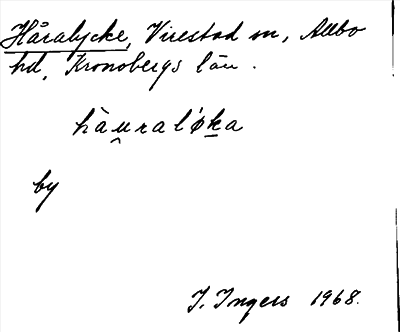 Håralycke, Virestad sn, Allbo
hd, Kronobergs län.
hàu̯ralǿka
by
I. Ingers 1968.